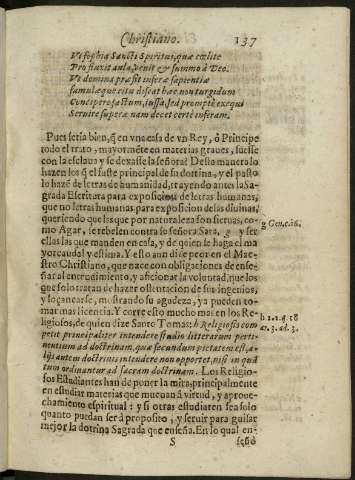 Christiano. 137
Vt sophia Sancti Spiritus, quæ cælite
Profluxit aula, venit & summo à Deo.
Vt domina præsit inferæ sapientiæ
famulæque ritu discat hæc non turgidum
Concipere fastum, iussa sed promptè exequi
Seruire superæ nam decet certè inferam.
Pues seria bien, q̃ en vna casa de vn Rey, ò Principe
todo el trato, mayormẽte en materias graues, fuesse
con la esclaua y se dexasse la señora? Desta manera lo
hazen los q̃ el fuste principal de su dottina, y el pasto
lo hazẽ de letras de humanidad, trayendo antes la Sa-
grada Escritura para exposicion de letras humanas,
que no letras humanas para exposicion de las diuinas,
queriendo que las que por naturaleza son sieruas, co-
mo Agar, se rebelen contra su señora Sara, g y ser
ellas las que manden en casa, y de quien se haga el ma
yor caudal y estima. Y esto aun dize peor en el Mae-
stro Christiano, que nace con obligaciones de ense-
ñar al entendimiento, y aficionar la voluntad, que los
que solo tratan de hazer ostentacion de sus ingenios,
y loçanearse, mostrando su agudeza, ya pueden to-
mar mas licencia. Y corre esto mucho mas en los Re-
ligiosos, de quien dize Santo Tomas: h Religiosis com
petit principaliter intendere studio litterarum perti-
nentium ad doctrinam, quæ secundum pietatem est, a-
lijs autem doctrinis intendere non oportet, nisi in quã
tum ordinantur ad sacram doctrinam. Los Religio-
sos Estudiantes han de poner la mira, principalmente
en estudiar materias que mueuan à virtud, y aproue-
chamiento espiritual: y si otras estudiaren sea solo
quanto puedan ser à proposito, y seruir para guisar
mejor la dotrina Sagrada que enseña. En lo qual en-
S
seño
g Gen. c. 16.
h 2. 2. q. 18
ar. 3. ad. 3.